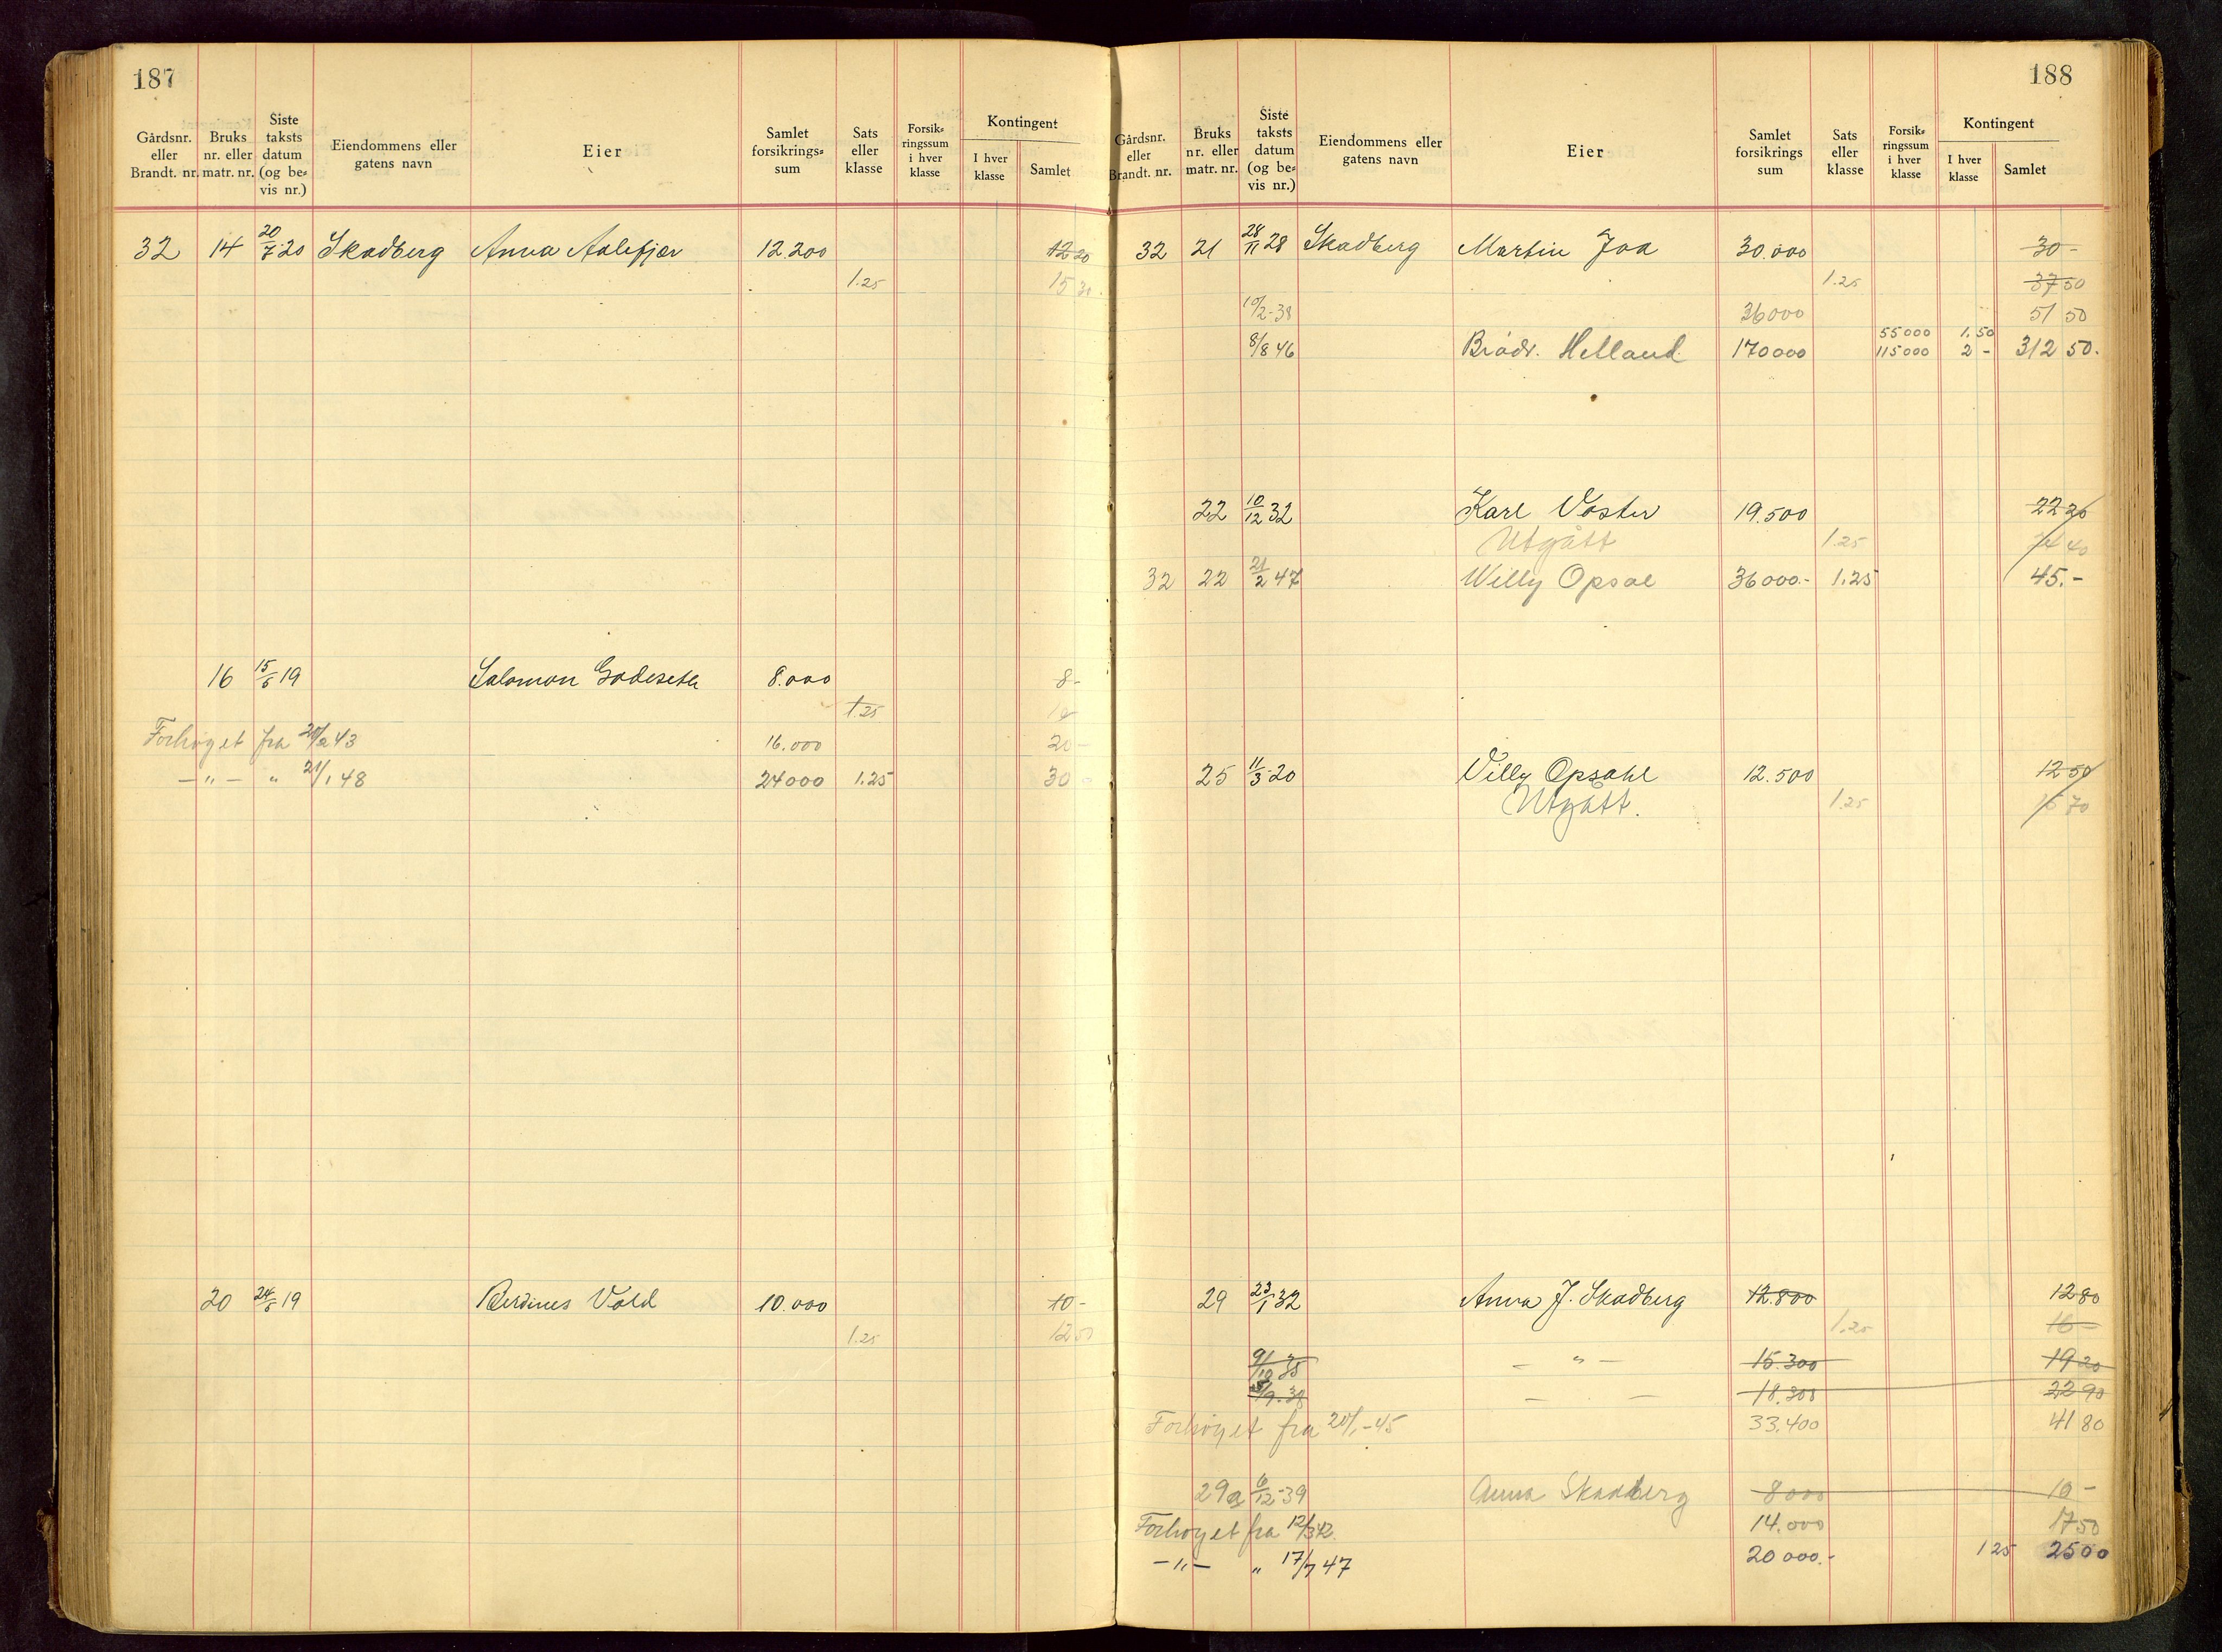 187
Gårdsnr. eller Brandt. nr.
Bruks nr. eller matr. nr.
Siste taksts datum (og be= vis nr.)
Eiendommens eller gatens navn
Eier
Samlet forsikrings= sum
Sats eller klasse
Forsik= ringssum i hver klasse
Kontingent
I hver klasse
Samlet
32 14 20/7 20 Skadberg Anna 12.200 12 20
1.25 15 30
16 15/6 19 Salomon Godeseth 8.000 8-
1.25 10
Forhøyet fra 20/2 43 16.000 20-
-"- " 21/1 48 24000 1.25 30
20 24/6 19 Berdines Vold 10.000 10-
1.25 12 50
188
Gårdsnr. eller Brandt. nr.
Bruks nr. eller matr. nr.
Siste taksts datum (og be= vis nr.)
Eiendommens eller gatens navn
Eier
Samlet forsikrings sum
Sats eller klasse
Forsik= ringssum i hver klasse
Kontingent
I hver klasse
Samlet
32 21 28/11 28 Skadberg Martin Joa 30.000 30-
1.25 37 50
10/2-38 36000 51 50
55000 1,50
8/8 46 Brødr. Helland 170000 115000 2- 312 50.
22 10/12 32 Karl Voster 19.500 22 20
Utgått 1.25 24 40
32 22 21/2 47 Willy Opsal 36000.- 1.25 45.-
25 11/3-20 Villy Opsahl 12.500 12 50
Utgått. 1.25 15 70
29 23/1 32 Anna J. Skadberg 12.800 12 80
1.25 16-
9/10 35 - " - 15.300 19 20
5/9-38 - - 18.300 22 90
Forhøyet fra 20/1-45 33.400 41 80
29a 6/12-39 Anna Skadberg 8000 10-
Forhøyet fra 12/3 42 14.000 17 50
-"- " 17/7 47 20000.- 1 25 25 00